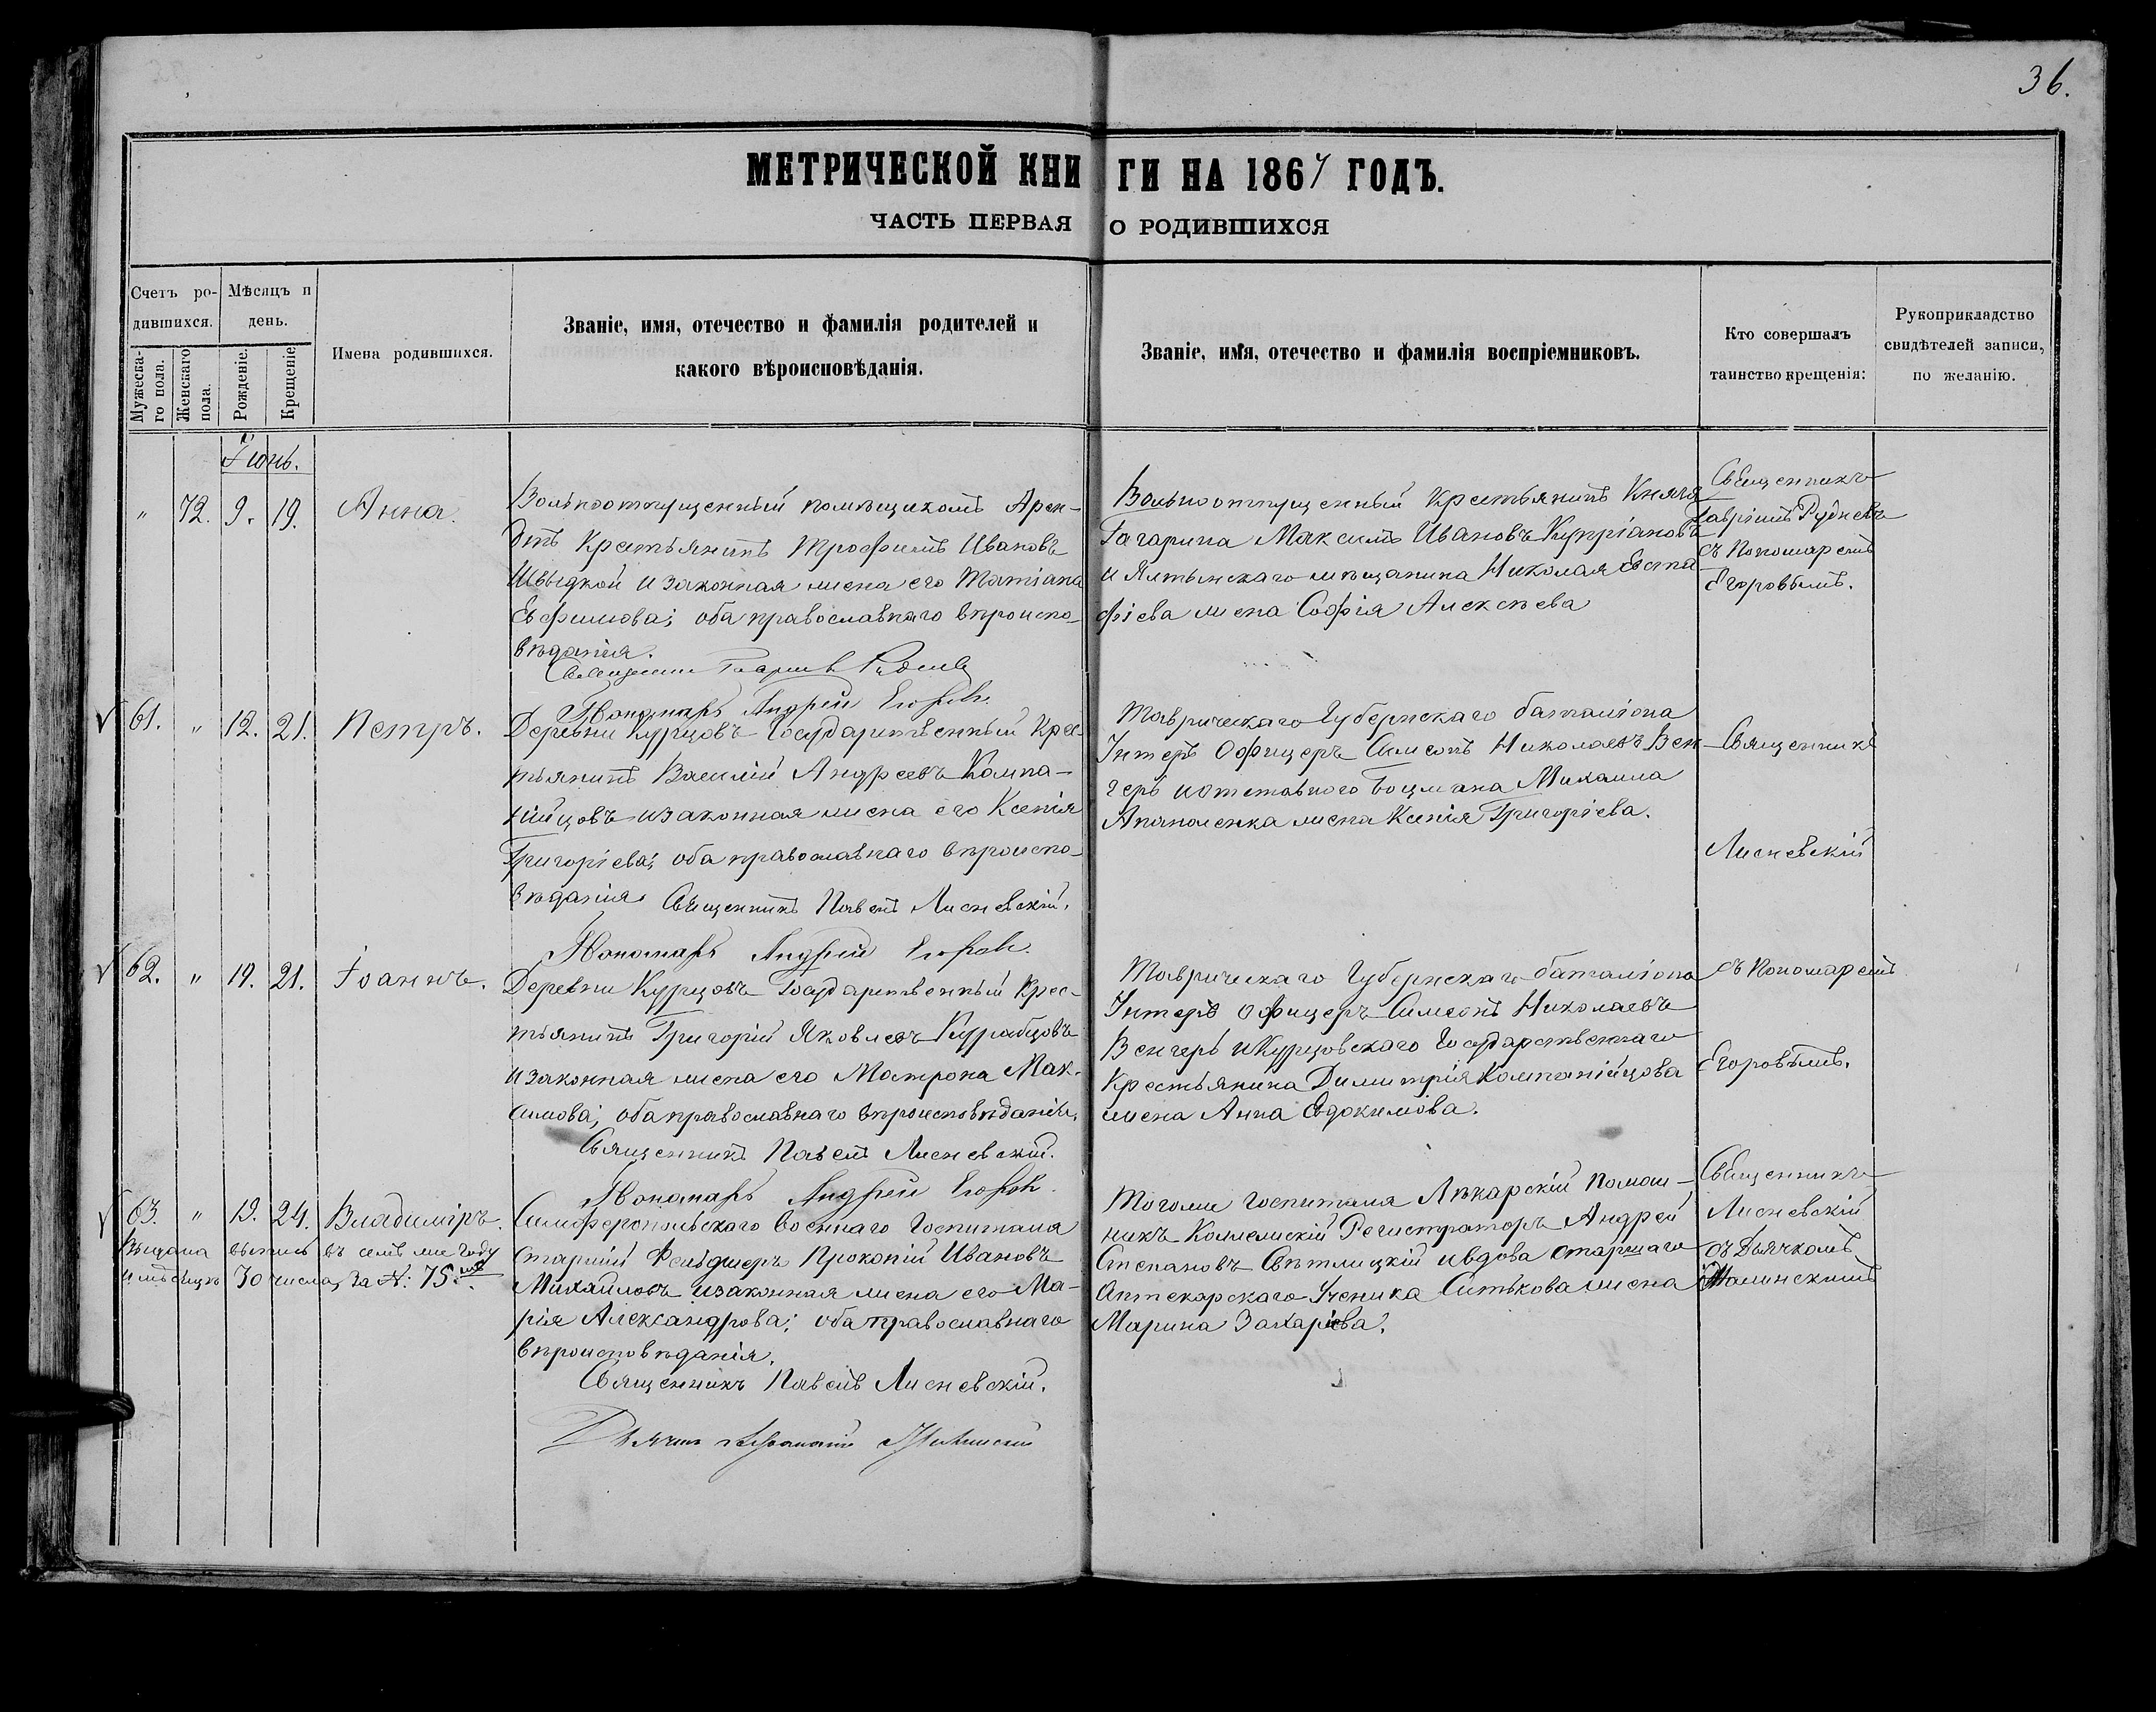 36.
МЕТРИЧЕСКОЙ КНИГИ НА 1867 ГОДЪ.
ЧАСТЬ ПЕРВАЯ О РОДИВШИХСЯ
Счетъ ро-
дившихся.
Мужеска-
го пола.
Женскаго
пола.
Мѣсяцъ и
день.
Рожденіе.
Крещеніе.
Имена родившихся.
Званіе, имя, отечество и фамилія родителей и
какого вѣроисповѣданія.
Званіе, имя, отечество и фамилія воспріемниковъ.
Кто совершалъ
таинство крещенія:
Рукоприкладство
свидѣтелей записи,
по желанію.
Іюнь.
" 72. 9. 19. Анна.
Вольноотпущенный помѣщикомъ Арен-
дтъ Крестьянинъ Трофимъ Ивановъ
Швыдкой и законная жена его Татіана
Евфимова; оба православнаго вѣроиспо-
вѣданія.
Священникъ Гавріилъ Рудневъ
Пономарь Андрей Егоровъ.
Вольноотпущенный Крестьянинъ Князя
Гагарина Максимъ Ивановъ Купріановъ
и Ялтынскаго мѣщанина Николая Евста-
фіева жена Софія Алексѣева
Священникъ
Гавріилъ Рудневъ
съ Пономаремъ
Егоровымъ.
61. " 12. 21. Петръ.
Деревни Курцовъ Государственный Крес-
тьянинъ Василій Андреевъ Компа-
нійцовъ и законная жена его Ксенія
Григоріева; оба православнаго вѣроиспо-
вѣданія. Священникъ Павелъ Лисневскій.
Пономарь Андрей Егоровъ.
Таврическаго Губернскаго баталіона
Унтеръ Офицеръ Симеонъ Николаевъ Вен-
геръ и отставного Боцмана Михаила
Апаноленка жена Ксенія Григоріева.
Священникъ
Лисневскій
62. " 19. 21. Іоаннъ.
Деревни Курцовъ Государственный Крес-
тьянинъ Григорій Яковлевъ Курабцовъ
и законная жена его Матрона Мак-
симова; оба православнаго вѣроисповѣданія.
Священникъ Павелъ Лисневскій.
Пономарь Андрей Егоровъ.
Таврическаго Губернскаго баталіона
Унтеръ Офицеръ Симеонъ Николаевъ
Венгеръ и Курцовскаго Государственнаго
Крестьянина Димитрія Компанійцова
жена Анна Евдокимова.
съ Пономаремъ
Егоровымъ.
63. " 19. 24. Владиміръ.
Выдана выпись въ семъ же году
и мѣсяцѣ 30 числа, за №: 75.мъ
Симферопольскаго Военнаго Госпиталя
старшій Фельдшеръ Прокопій Ивановъ
Михайловъ и законная жена его Ма-
рія Александрова; оба православнаго
вѣроисповѣданія.
Священникъ Павелъ Лисневскій.
Дьячекъ
Тогоже Госпиталя Лѣкарскій помощ-
никъ Коллежскій Регистраторъ Андрей
Степановъ Свѣтлицкій и вдова старшаго
Аптекарскаго Ученика Ситькова жена
Марина Захаріева.
Священникъ
Лисневскій
съ Дьячкомъ